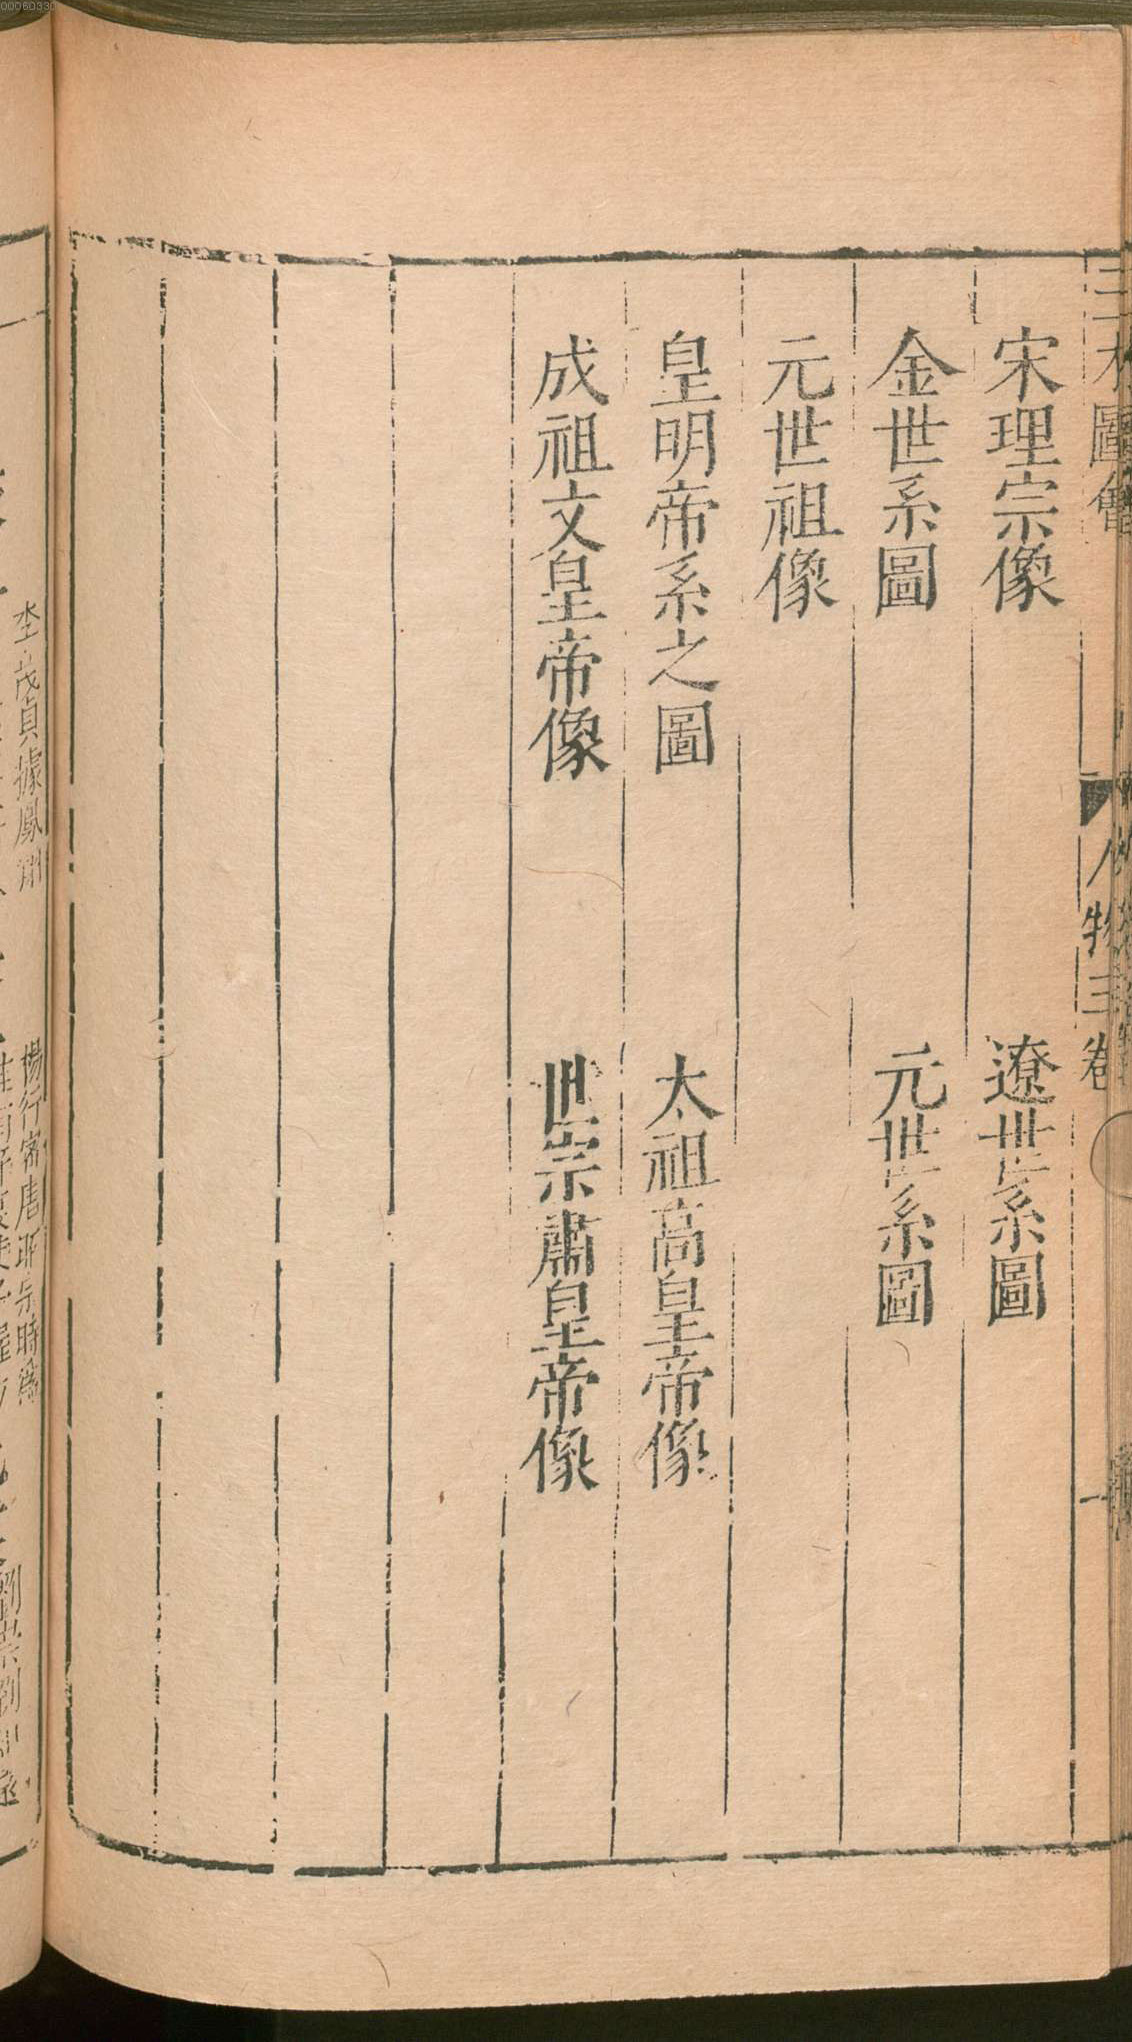 三才圖會 人物三卷 一
宋理宗像 遼世系圖
金世系圖 元世系圖
元世祖像
皇明帝系之圖 太祖高皇帝像
成祖文皇帝像 世宗肅皇帝像
茂貞據鳳翔 楊行密唐昭宗時為
00060330